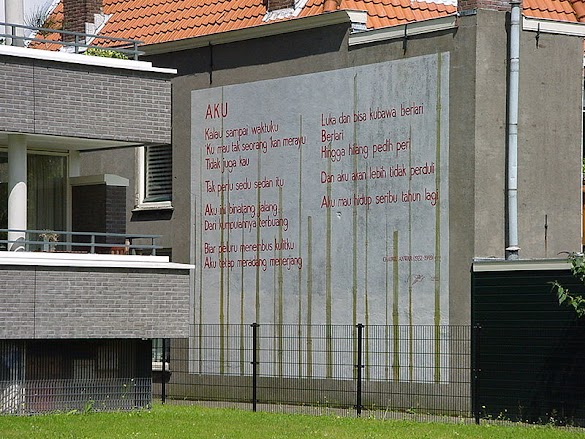 AKU
Kalau sampai waktuku
'Ku mau tak seorang 'kan merayu
Tidak juga kau
Tak perlu sedu sedan itu
Aku ini binatang jalang
Dari kumpulannya terbuang
Biar peluru menembus kulitku
Aku tetap meradang menerjang
Luka dan bisa kubawa berlari
Berlari
Hingga hilang pedih peri
Dan aku akan lebih tidak perduli
Aku mau hidup seribu tahun lagi
CHAIRIL ANWAR (1922-1949)